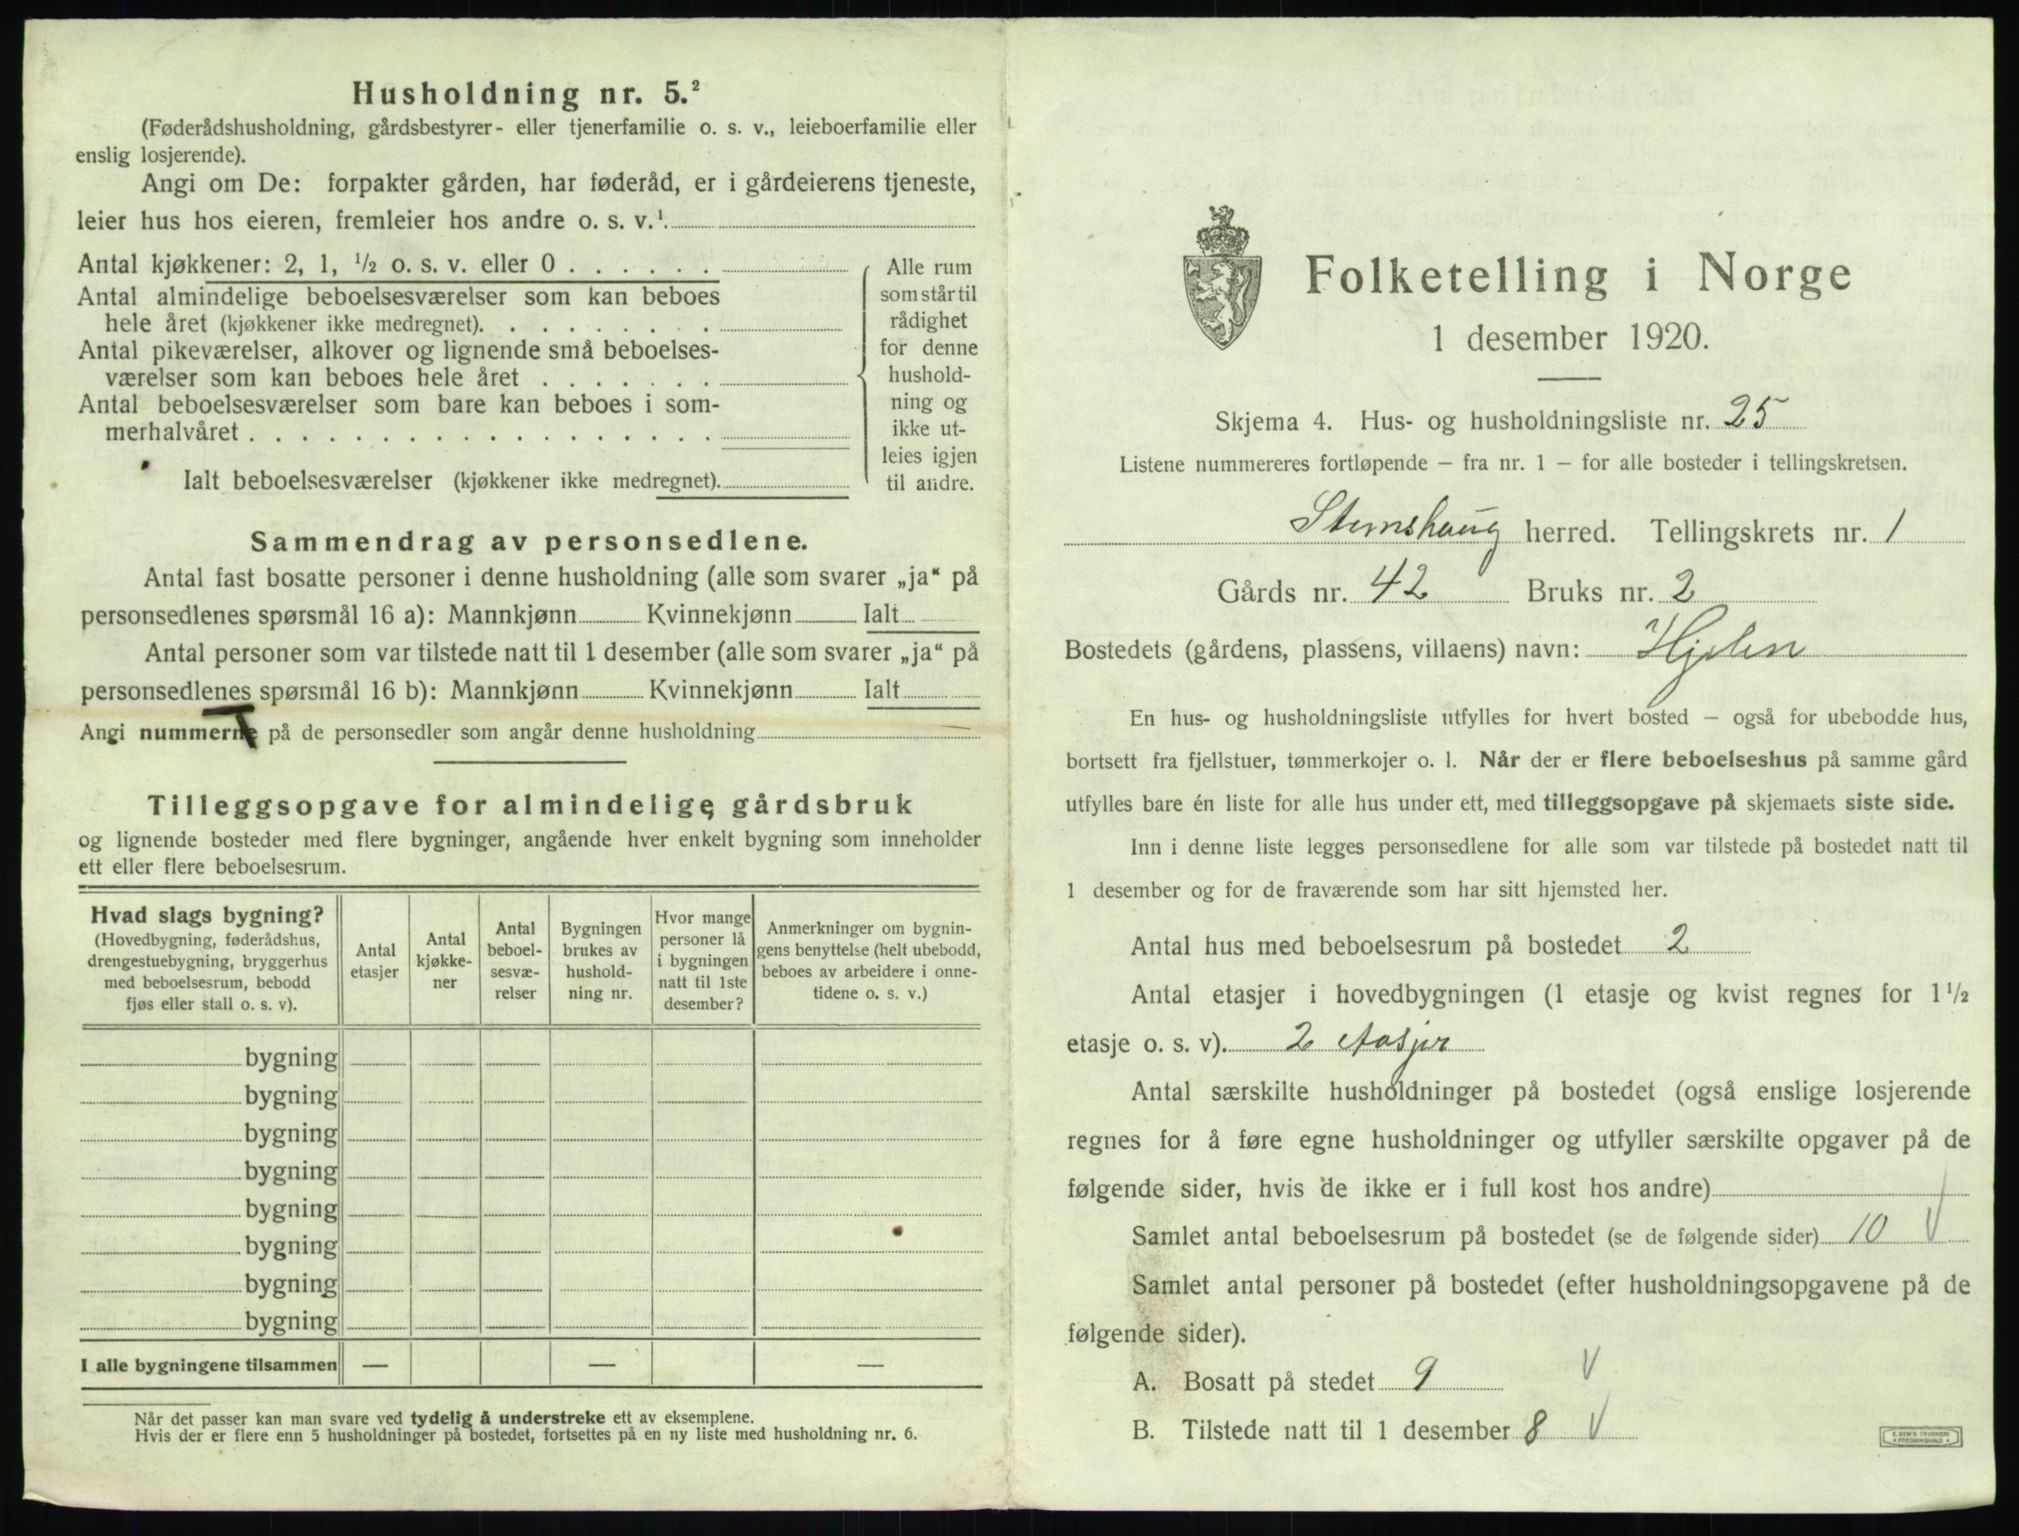 Husholdning nr. 5.²
(Føderådshusholdning, gårdsbestyrer- eller tjenerfamilie o. s. v., leieboerfamilie eller
enslig losjerende).
Angi om De: forpakter gården, har føderåd, er i gårdeierens tjeneste,
leier hus hos eieren, fremleier hos andre o. s. v.¹.
Antal kjøkkener: 2, 1, ½ o. s. v. eller 0 . . . . . .
Antal almindelige beboelsesværelser som kan beboes
hele året (kjøkkener ikke medregnet). . . . . . . . .
Antal pikeværelser, alkover og lignende små beboelses-
værelser som kan beboes hele året . . . . . . .
Antal beboelsesværelser som bare kan beboes i som-
merhalvåret . . . . . . . . . . . . . . . . . .
Ialt beboelsesværelser (kjøkkener ikke medregnet).
Alle rum
som står til
rådighet
for denne
hushold-
ning og
ikke ut-
leies igjen
til andre.
Sammendrag av personsedlene.
Antal fast bosatte personer i denne husholdning (alle som svarer „ja“ på
personsedlenes spørsmål 16 a): Mannkjønn Kvinnekjønn Ialt
Antal personer som var tilstede natt til 1 desember (alle som svarer „ja“ på
personsedlenes spørsmål 16 b): Mannkjønn Kvinnekjønn Ialt
Angi nummerne på de personsedler som angår denne husholdning
Tilleggsopgave for almindelige gårdsbruk
og lignende bosteder med flere bygninger, angående hver enkelt bygning som inneholder
ett eller flere beboelsesrum.
Hvad slags bygning?
(Hovedbygning, føderådshus,
drengestuebygning, bryggerhus
med beboelsesrum, bebodd
fjøs eller stall o. s. v).
Antal
etasjer
Antal
kjøkke-
ner
Antal
beboel-
sesvæ-
relser
Bygningen
brukes av
hushold-
ning nr.
Hvor mange
personer lå
i bygningen
natt til 1ste
desember?
Anmerkninger om bygnin-
gens benyttelse (helt ubebodd,
beboes av arbeidere i onne-
tidene o. s. v.)
bygning
bygning
bygning
bygning
bygning
bygning
bygning
bygning
I alle bygningene tilsammen — — —
Når det passer kan man svare ved tydelig å understreke ett av eksemplene.
Hvis der er flere enn 5 husholdninger på bostedet, fortsettes på en ny liste med husholdning nr. 6.
Folketelling i Norge
1 desember 1920.
Skjema 4. Hus- og husholdningsliste nr. 25
Listene nummereres fortløpende – fra nr. 1 – for alle bosteder i tellingskretsen.
Stemshaug herred. Tellingskrets nr. 1
Gårds nr. 42 Bruks nr. 2
Bostedets (gårdens, plassens, villaens) navn: Hjelen
En hus- og husholdningsliste utfylles for hvert bosted – også for ubebodde hus,
bortsett fra fjellstuer, tømmerkojer o. l. Når der er flere beboelseshus på samme gård
utfylles bare én liste for alle hus under ett, med tilleggsopgave på skjemaets siste side.
Inn i denne liste legges personsedlene for alle som var tilstede på bostedet natt til
1 desember og for de fraværende som har sitt hjemsted her.
Antal hus med beboelsesrum på bostedet 2
Antal etasjer i hovedbygningen (1 etasje og kvist regnes for 1½
etasje o. s. v). 2
Antal særskilte husholdninger på bostedet (også enslige losjerende
regnes for å føre egne husholdninger og utfyller særskilte opgaver på de
følgende sider, hvis de ikke er i full kost hos andre)
Samlet antal beboelsesrum på bostedet (se de følgende sider) 10 V
Samlet antal personer på bostedet (efter husholdningsopgavene på de
følgende sider).
A. Bosatt på stedet 9 V
B. Tilstede natt til 1 desember 8 V